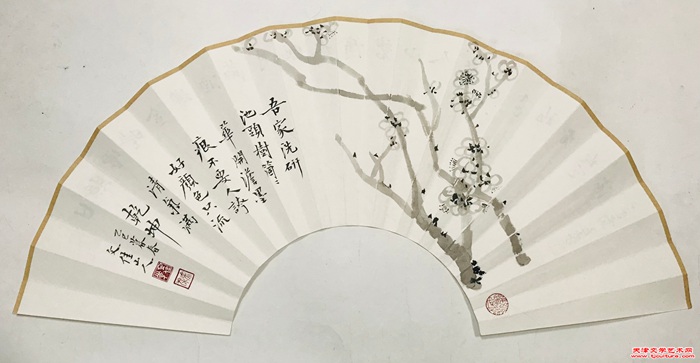 吾家洗研
池頭樹箇々
華開澹墨
痕不要人誇
好顏色只流
清氣滿
乾坤
山人
天津文学艺术网